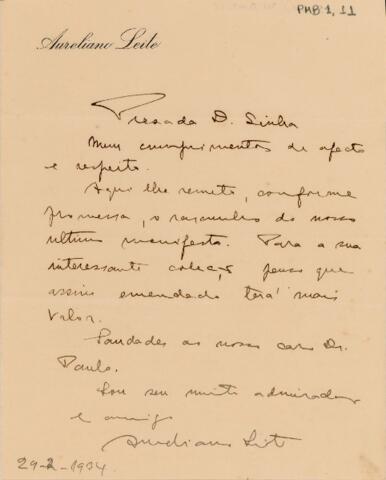 PMB 1, 11
Aureliano Leite
Presada D. Sinha
Meus cumprimentos de afecto
e respeito.
Aqui lhe remeto, conforme
promessa, o rascunho do nosso
ultimo manifesto. Para a sua
interessante colecção penso que
assim emendado terá mais
valor.
Saudades ao nosso caro Dr.
Paulo.
Sou seu muito admirador
e amigo
Aureliano Leite
29-2-1934